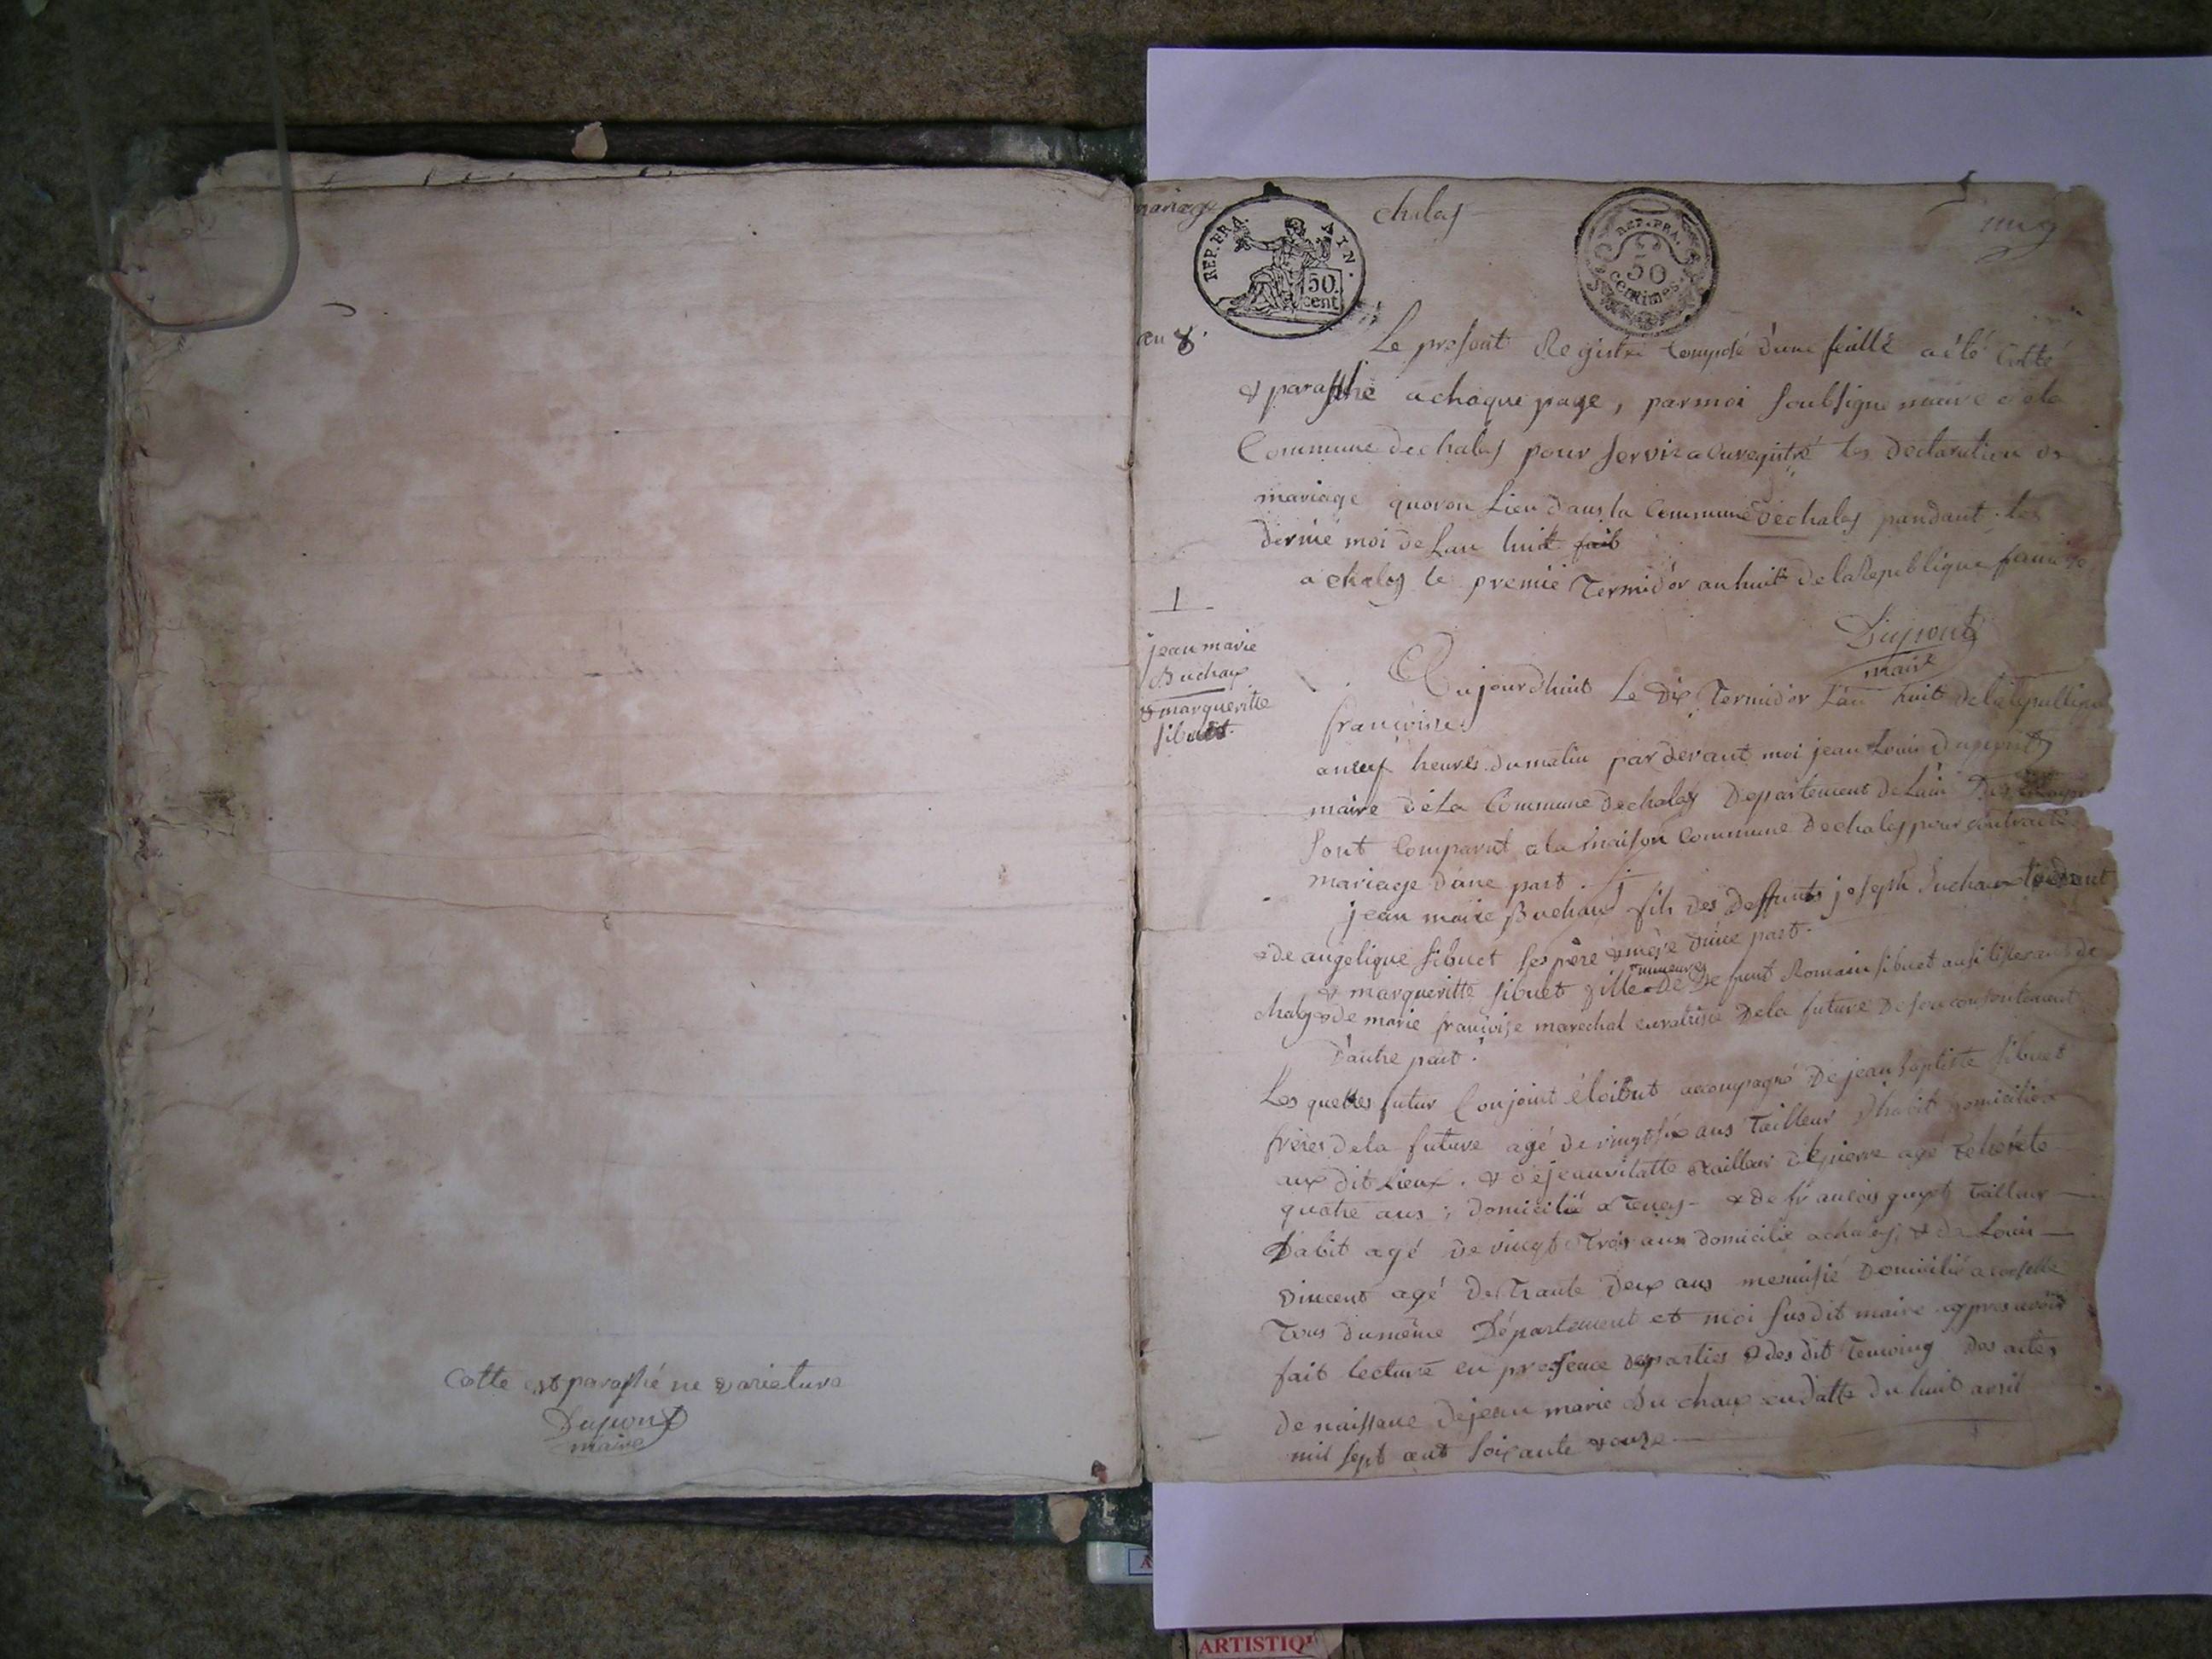 Cotte est paraphé ne varietura
Dupont
maire
mariage
chaley
REP. FRA. AIN.
50. cent
REP. FRA.
50
Centimes.
an 8.
Le present Registre composé d'une feuille a été Cotté
& paraphé a chaque page, par moi soubsigne maire de la
Commune de chaley pour servir a enregistré les declaration de
mariage quoron Lieu dans la Commune de chaley pandant les
dernié moi de Lan huit fait
a chaley le premié Termidor an huit de la Republique
Dupont
maire
1
jean marie
Buchaux
& margueritte
sibuet.
Aujourdhuit Le dix Termidor Lan huit de la republique
francoise
a neuf heures du matin par devant moi jean Louis Dupont
maire de La Commune de chaley Departement de Lain
sont comparut a la maison Commune de chaley pour contracté
mariage d'une part.
jean maire Buchaux fils des deffunts joseph Buchaux
& de angelique sibuet ses père & mère d'une part.
& margueritte sibuet fille mineure de defunt Romain sibuet ausi tisserand de
chaley & de marie francoise marechal curatrise de la future de son consentement
d'autre part.
Les quelles futur Conjoint étoitnt accompagné de jean baptiste sibuet
frères de la future agé de vingt six ans Tailleur d'habit domicilié
aux dit Lieux. & de jean vilatte tailleur de pierre agé de trente
quatre ans; domicilié a Tenay & de francois guyot Tailleur
d'abit agé de vingt trois ans domicilié a chaley, & de Louis
vincent agé de trante deux ans menuisié domicilié a
Tous du même Département et moi susdit maire appres avoir
fait lecture en presence des parties & des dit temoing des actes
de naissane de jean marie Buchaux en datte du huit avril
mil sept cent soixante & onze
ARTISTIQ